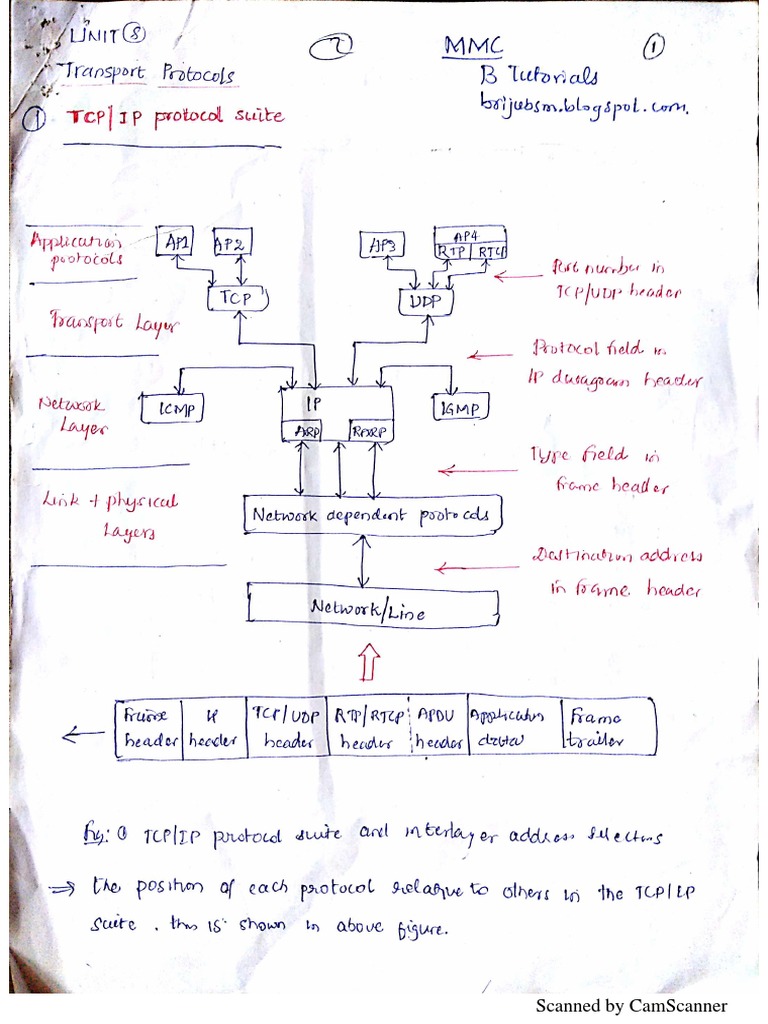 UNIT 8
2
MMC
1
Transport Protocols
B Tutorials
brijubsm.blogspot.com.
1 TCP/IP protocol suite
Application protocols
AP1
AP2
AP3
AP4
RTP
RTCP
TCP
UDP
Port number in
TCP/UDP header
Transport Layer
Protocol field in
IP datagram header
Network
Layer
ICMP
IP
ARP
RARP
IGMP
Type field in
frame header
Link + physical
Layers
Network dependent protocols
Destination address
in frame header
Network/Line
Frame header
IP header
TCP/UDP header
RTP/RTCP header
APDU header
Application data
Frame trailer
Fig: 1 TCP/IP protocol suite and interlayer address selectors
⇒ the position of each protocol relative to others in the TCP/IP
suite. this is shown in above figure.
Scanned by CamScanner